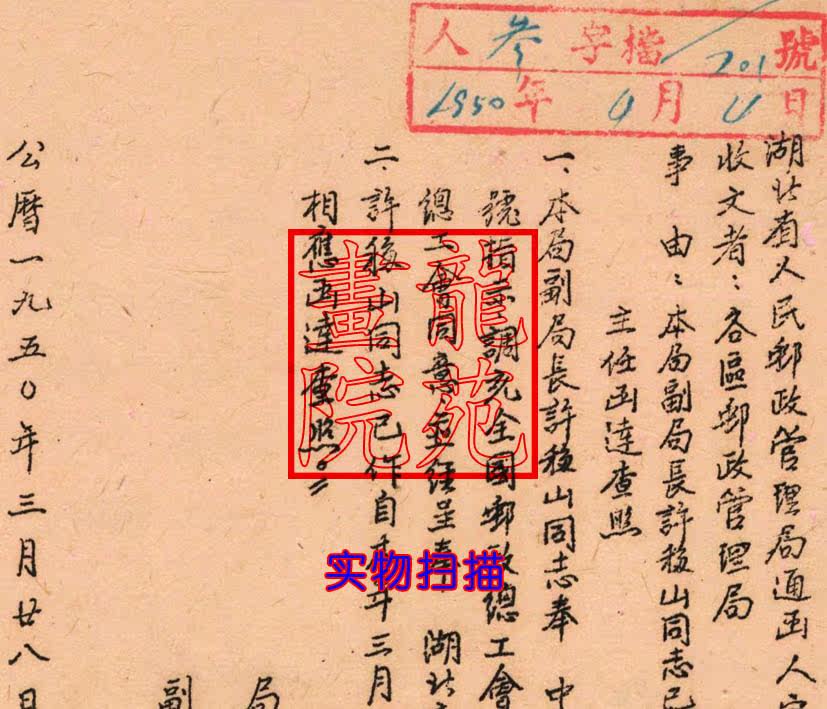 人叁字檔201號
1950年4月4日
湖北省人民郵政管理局通函人字
收文者:各區郵政管理局
事由:本局副局長許移山同志已
主任函達查照
一、本局副局長許移山同志奉 中
號指示調充全國郵政總工會
總工會同意,並經呈奉 湖北省
二、許移山同志已作自本年三月
相應函達查照。
公曆一九五〇年三月廿八日
局
副
龍苑
畫院
实物扫描